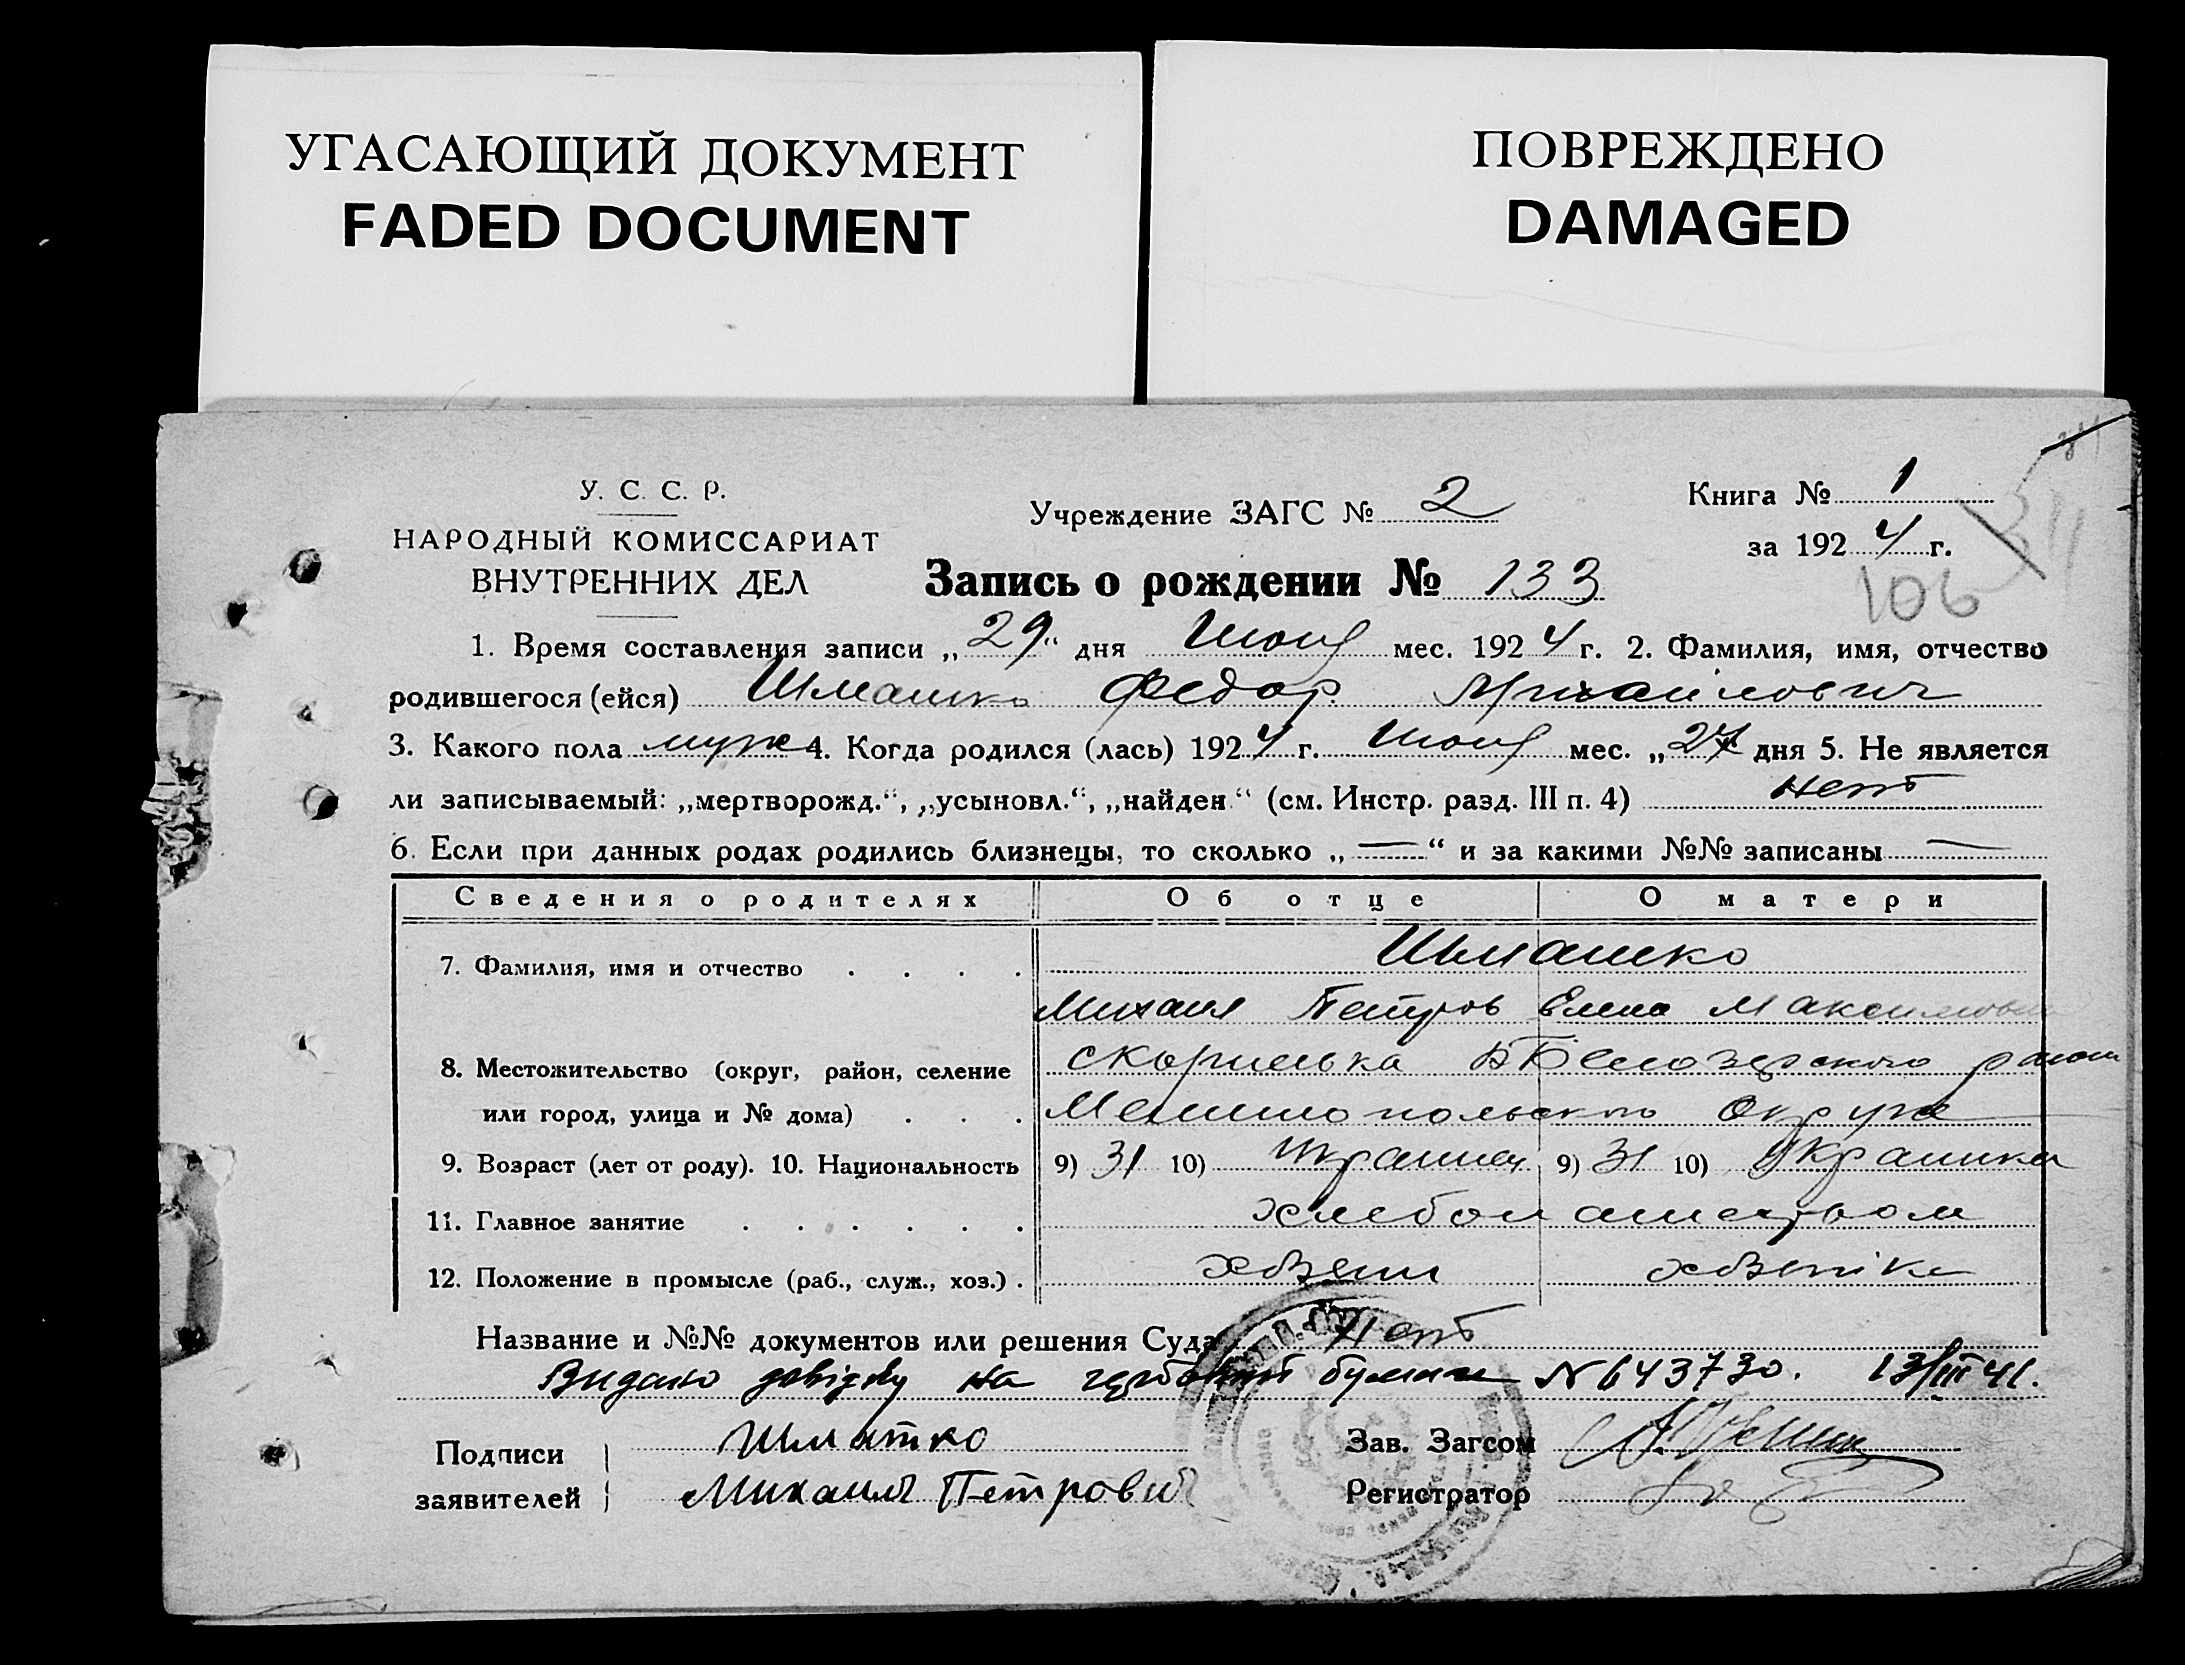 УГАСАЮЩИЙ ДОКУМЕНТ
FADED DOCUMENT
ПОВРЕЖДЕНО
DAMAGED
У. С. С. Р.
НАРОДНЫЙ КОМИССАРИАТ
ВНУТРЕННИХ ДЕЛ
Учреждение ЗАГС № 2
Книга № 1
за 1924 г.
106
Запись о рождении № 133
1. Время составления записи „29“ дня Июня мес. 1924 г. 2. Фамилия, имя, отчество
родившегося (ейся) Шматко Федор Михайлович
3. Какого пола муж 4. Когда родился (лась) 1924 г. Июня мес. „27 дня 5. Не является
ли записываемый: „мертворожд.“, „усыновл.“, „найден.“ (см. Инстр. разд. III п. 4) нет
6. Если при данных родах родились близнецы, то сколько „—“ и за какими №№ записаны —
Сведения о родителях Об отце О матери
7. Фамилия, имя и отчество . . . . Шматко
Михаил Петров Елена Максимовна
8. Местожительство (округ, район, селение Белозерского района
или город, улица и № дома) . . . Мелитопольского Округа
9. Возраст (лет от роду). 10. Национальность 9) 31 10) Украинец 9) 31 10) Украинка
11. Главное занятие . . . . . . хлебопашеством
12. Положение в промысле (раб., служ., хоз.) . хозяин хозяйка
Название и №№ документов или решения Суда Нет
Видано довідку на гербовій бумаги № 643730. 13/III 41.
Подписи заявителей
Шматко
Михаил Петрович
Зав. Загсом
Регистратор